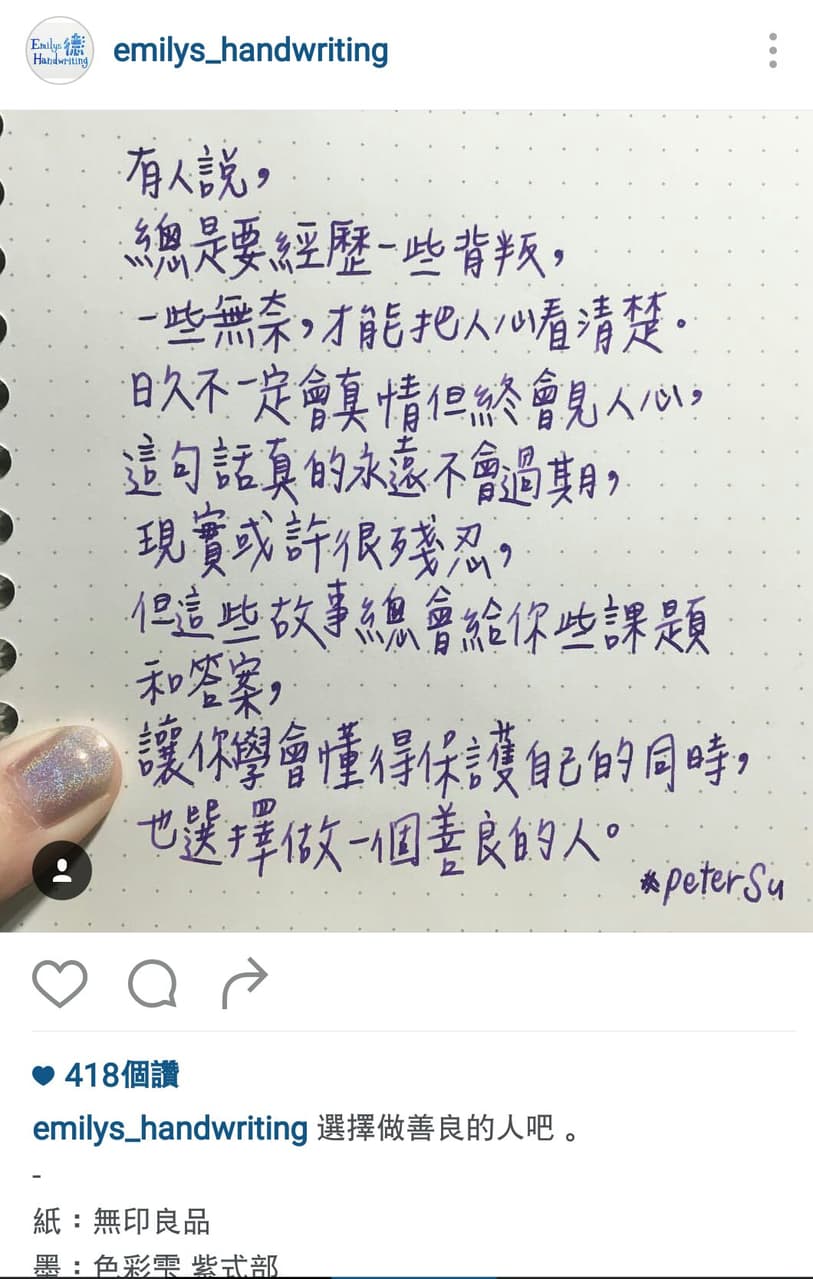 Emilys 德
Handwriting
emilys_handwriting
有人說，
總是要經歷一些背叛，
一些無奈，才能把人心看清楚。
日久不一定會真情但終會見人心，
這句話真的永遠不會過期，
現實或許很殘忍，
但這些故事總會給你些課題
和答案，
讓你學會懂得保護自己的同時，
也選擇做一個善良的人。
*peterSu
418個讚
emilys_handwriting 選擇做善良的人吧。
-
紙：無印良品
墨：色彩雫 紫式部